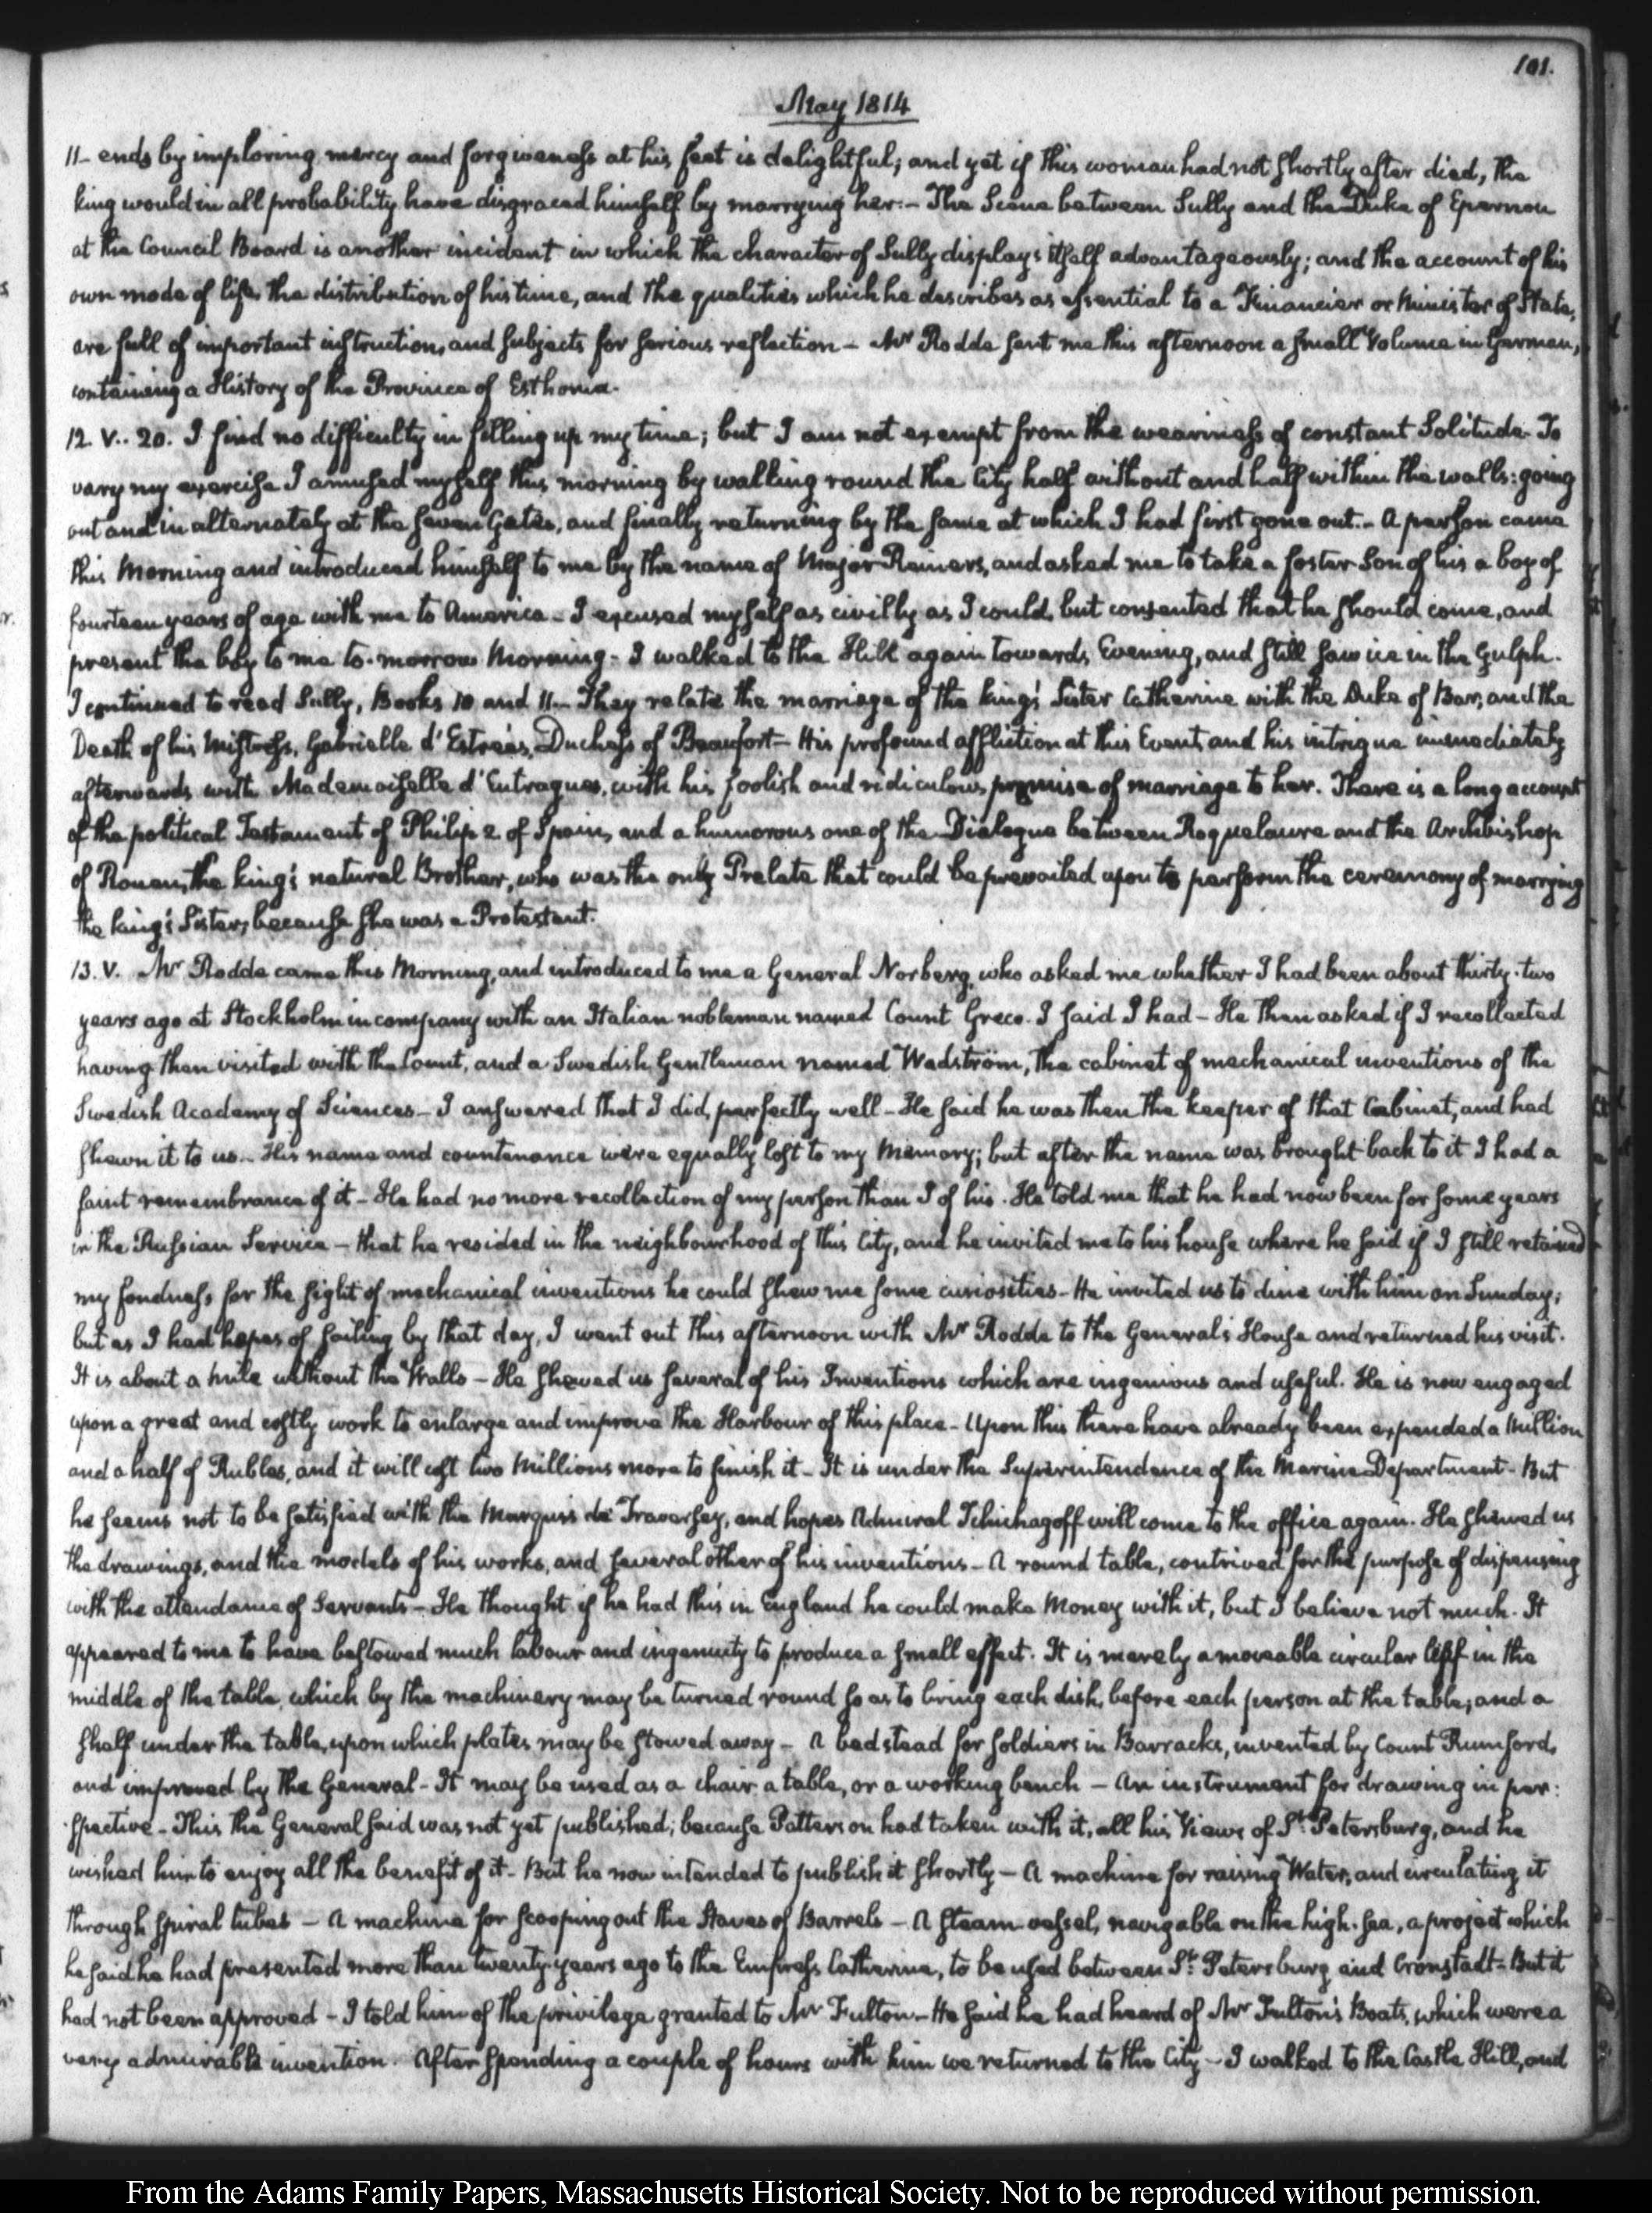 101.
May 1814
11- ends by imploring mercy and forgiveness at his feet is delightful; and yet if this woman had not shortly after died, the
king would in all probability have disgraced himself by marrying her.- The Scene between Sully and the Duke of Epernon
at the Council Board is another incident in which the character of Sully displays itself advantageously; and the account of his
own mode of life, the distribution of his time, and the qualities which he describes as essential to a Financier or Minister of State,
are full of important instruction, and subjects for serious reflection - Mr Rodde sent me this afternoon a small Volume in German,
containing a History of the Province of Esthonia.
12. V.. 20. I find no difficulty in filling up my time; but I am not exempt from the weariness of constant Solitude. To
vary my exercise I amused myself this morning by walking round the City half without and half within the walls: going
out and in alternately at the seven Gates, and finally returning by the same at which I had first gone out.- A person came
this Morning and introduced himself to me by the name of Major Reiners, and asked me to take a foster Son of his a boy of
fourteen years of age with me to America - I excused myself as civilly as I could, but consented that he should come, and
present the boy to me to-morrow Morning - I walked to the Hill again towards Evening, and still saw ice in the Gulph.
I continued to read Sully, Books 10 and 11.- They relate the marriage of the king's Sister Catherine with the Duke of Bar, and the
Death of his Mistress, Gabrielle d'Estrées, Duchess of Beaufort - His profound affliction at this Event, and his intrigue immediately
afterwards with Mademoiselle d'Entragues, with his foolish and ridiculous promise of marriage to her. There is a long account
of the political Testament of Philip 2 of Spain, and a humorous one of the Dialogue between Roquelaure and the Archbishop
of Rouen, the king's natural Brother, who was the only Prelate that could be prevailed upon to perform the ceremony of marrying
the king's Sister, because she was a Protestant.
13. V. Mr Rodde came this Morning, and introduced to me a General Norberg, who asked me whether I had been about thirty-two
years ago at Stockholm in company with an Italian nobleman named Count Greco. I said I had - He then asked if I recollected
having then visited with the Count, and a Swedish Gentleman named Wadström, the cabinet of mechanical inventions of the
Swedish Academy of Sciences - I answered that I did, perfectly well - He said he was then the keeper of that Cabinet, and had
shewn it to us.- His name and countenance were equally lost to my Memory; but after the name was brought back to it I had a
faint remembrance of it - He had no more recollection of my person than I of his. He told me that he had now been for some years
in the Russian Service - that he resided in the neighbourhood of this City, and he invited me to his house where he said if I still retained
my fondness for the sight of mechanical inventions he could shew me some curiosities - He invited us to dine with him on Sunday;
but as I had hopes of sailing by that day, I went out this afternoon with Mr Rodde to the General's House and returned his visit.
It is about a mile without the Walls - He shewed us several of his Inventions which are ingenious and useful. He is now engaged
upon a great and costly work to enlarge and improve the Harbour of this place - Upon this there have already been expended a Million
and a half of Rubles, and it will cost two Millions more to finish it - It is under the Superintendence of the Marine Department - But
he seems not to be satisfied with the Marquis de Traversay, and hopes Admiral Tchichagoff will come to the office again. He shewed us
the drawings, and the models of his works, and several other of his inventions - A round table, contrived for the purpose of dispensing
with the attendance of Servants - He thought if he had this in England he could make Money with it, but I believe not much. It
appeared to me to have bestowed much labour and ingenuity to produce a small effect. It is merely a moveable circular leaf in the
middle of the table, which by the machinery may be turned round so as to bring each dish, before each person at the table; and a
shelf under the table, upon which plates may be stowed away - A bedstead for soldiers in Barracks, invented by Count Rumford,
and improved by the General - It may be used as a chair a table, or a working bench - An instrument for drawing in per:
:spective - This the General said was not yet published; because Patterson had taken with it, all his Views of St. Petersburg, and he
wished him to enjoy all the benefit of it - But he now intended to publish it shortly - A machine for raising Water, and circulating it
through spiral tubes - A machine for scooping out the Staves of Barrels - A steam vessel, navigable on the high-sea, a project which
he said he had presented more than twenty years ago to the Empress Catherine, to be used between St. Petersburg and Cronstadt - But it
had not been approved - I told him of the privilege granted to Mr Fulton - He said he had heard of Mr Fulton's Boats, which were a
very admirable invention. After spending a couple of hours with him we returned to the City - I walked to the Castle Hill, and
From the Adams Family Papers, Massachusetts Historical Society. Not to be reproduced without permission.